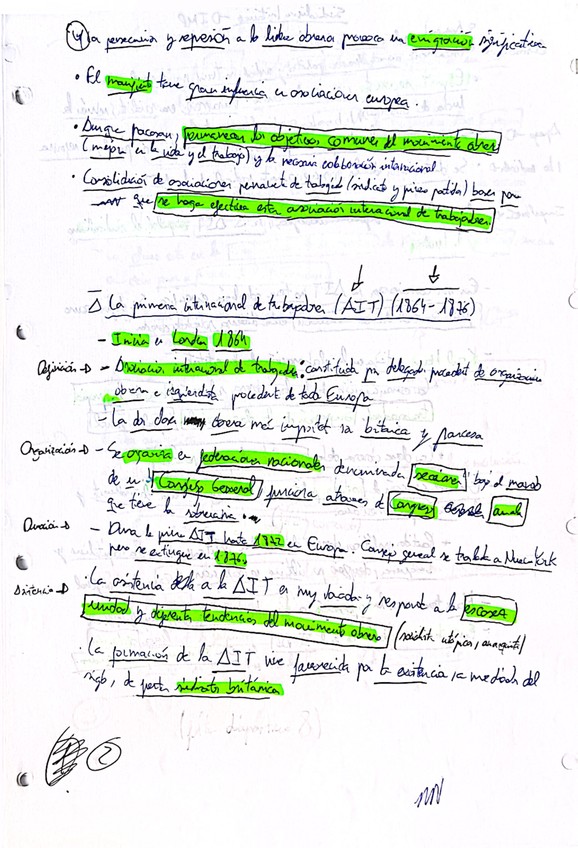 La persecución y represión a lo líder obrero provoca un emigración significativa
• El manifiesto tiene gran influencia en asociaciones europea.
• Aunque fracasan, permanecen los objetivos comunes del movimiento obrero
(mejora en la vida y el trabajo) y la necesaria colaboración internacional
• Consolidación de asociaciones permanente de trabajo (sindicato y primeros partido) bases para
que se haga efectiva esta asociación internacional de trabajadores.
Δ La primera internacional de trabajadores (AIT) (1864-1876)
- Inicia en Londres 1864
Definición → - Asociación internacional de trabajador: constituida por delegado procedent de organización
obrera e izquierdista procedent de toda Europa
- La dos clase obrera más important son británica y francesa
Organización → - Se organiza en federaciones nacionales denominada secciones bajo el mando
de un Consejo General, funciona através de Congreso anual
que tiene la soberanía.
Duración → - Dura la primera AIT hasta 1872 en Europa. Consejo general se traslada a Nueva York
pero se extingue en 1876.
Asistencia → · La asistencia a la AIT es muy variada y responde a la escasa
unidad y diferente tendencias del movimiento obrero (socialista utópico, anarquista)
· La formación de la AIT vino favorecida por la existencia, a mediado del
siglo, de parte sindicato británica
2